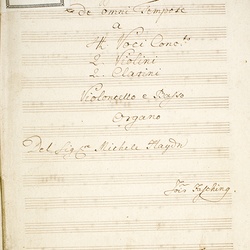 de omni Tempore
a
4 Voci Conc.ti
2. Violini
2. Clarini
Violoncello e Basso
Organo
Del Sigre Michele Haydn